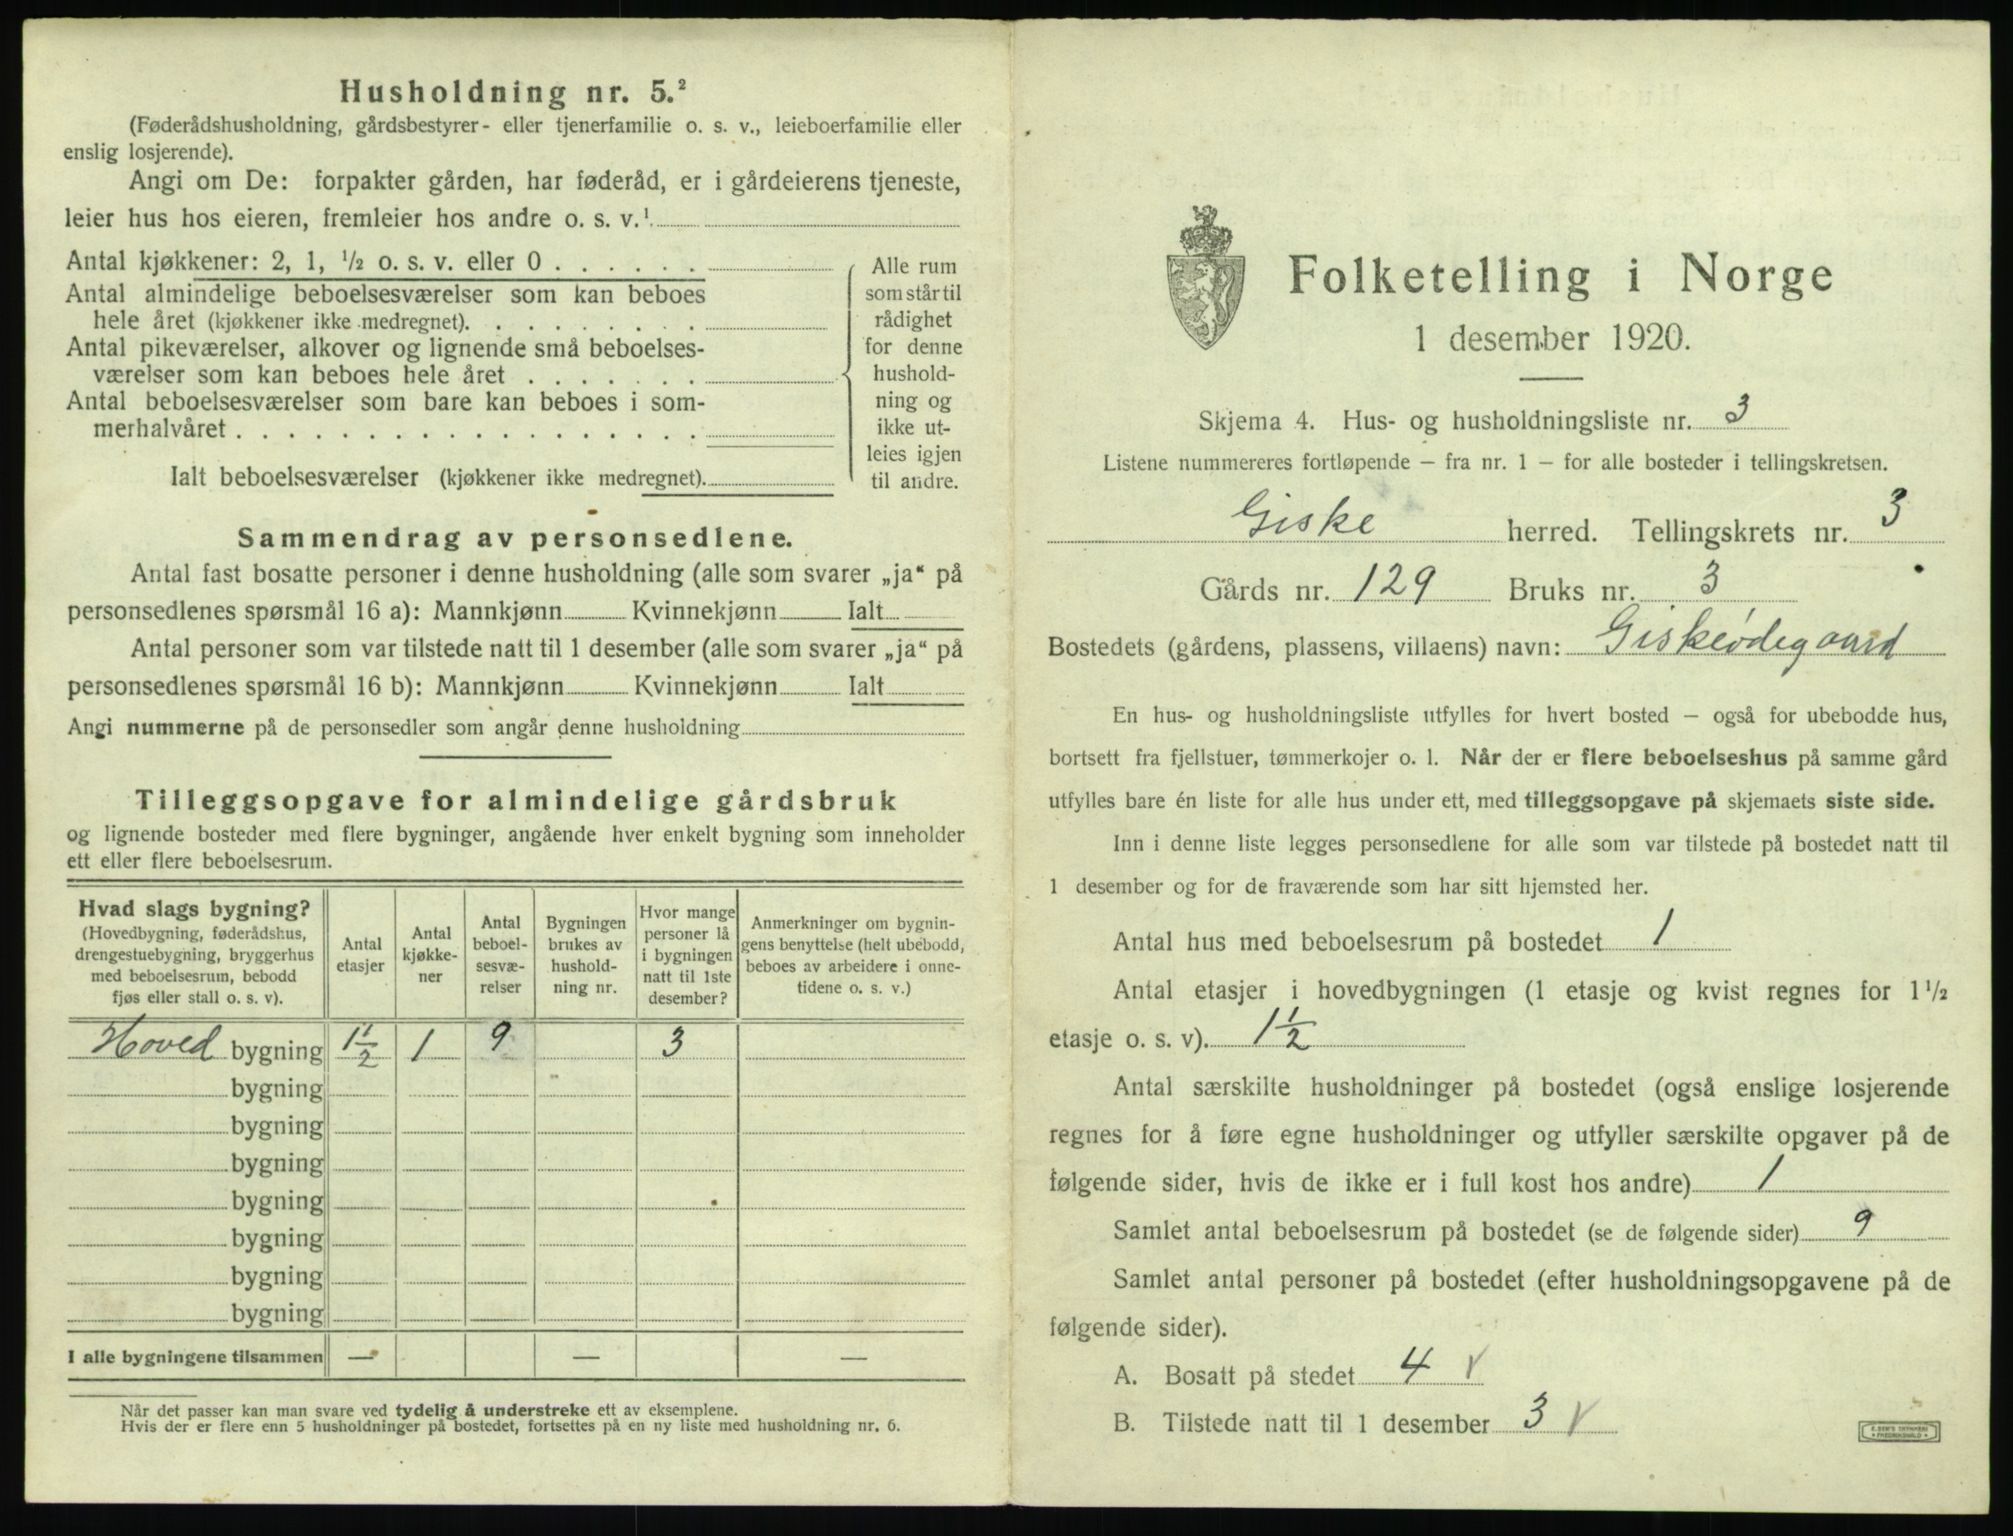 Husholdning nr. 5.²
(Føderådshusholdning, gårdsbestyrer- eller tjenerfamilie o. s. v., leieboerfamilie eller
enslig losjerende).
Angi om De: forpakter gården, har føderåd, er i gårdeierens tjeneste,
leier hus hos eieren, fremleier hos andre o. s. v.¹
Antal kjøkkener: 2, 1, ½ o. s. v. eller 0 . . . . . .
Antal almindelige beboelsesværelser som kan beboes
hele året (kjøkkener ikke medregnet). . . . . . . . .
Antal pikeværelser, alkover og lignende små beboelses-
værelser som kan beboes hele året . . . . . . .
Antal beboelsesværelser som bare kan beboes i som-
merhalvåret . . . . . . . . . . . . . . . . . .
Ialt beboelsesværelser (kjøkkener ikke medregnet).
Alle rum
som står til
rådighet
for denne
hushold-
ning og
ikke ut-
leies igjen
til andre.
Sammendrag av personsedlene.
Antal fast bosatte personer i denne husholdning (alle som svarer „ja“ på
personsedlenes spørsmål 16 a): Mannkjønn Kvinnekjønn Ialt
Antal personer som var tilstede natt til 1 desember (alle som svarer „ja“ på
personsedlenes spørsmål 16 b): Mannkjønn Kvinnekjønn Ialt
Angi nummerne på de personsedler som angår denne husholdning
Tilleggsopgave for almindelige gårdsbruk
og lignende bosteder med flere bygninger, angående hver enkelt bygning som inneholder
ett eller flere beboelsesrum.
Hvad slags bygning?
(Hovedbygning, føderådshus,
drengestuebygning, bryggerhus
med beboelsesrum, bebodd
fjøs eller stall o. s. v).
Antal
etasjer
Antal
kjøkke-
ner
Antal
beboel-
sesvæ-
relser
Bygningen
brukes av
hushold-
ning nr.
Hvor mange
personer lå
i bygningen
natt til 1ste
desember?
Anmerkninger om bygnin-
gens benyttelse (helt ubebodd,
beboes av arbeidere i onne-
tidene o. s. v.)
Hoved bygning 1½ 1 9 3
bygning
bygning
bygning
bygning
bygning
bygning
bygning
I alle bygningene tilsammen — — —
Når det passer kan man svare ved tydelig å understreke ett av eksemplene.
Hvis der er flere enn 5 husholdninger på bostedet, fortsettes på en ny liste med husholdning nr. 6.
Folketelling i Norge
1 desember 1920.
Skjema 4. Hus- og husholdningsliste nr. 3
Listene nummereres fortløpende – fra nr. 1 – for alle bosteder i tellingskretsen.
Giske herred. Tellingskrets nr. 3
Gårds nr. 129 Bruks nr. 3
Bostedets (gårdens, plassens, villaens) navn: Giskeødegaard
En hus- og husholdningsliste utfylles for hvert bosted – også for ubebodde hus,
bortsett fra fjellstuer, tømmerkojer o. l. Når der er flere beboelseshus på samme gård
utfylles bare én liste for alle hus under ett, med tilleggsopgave på skjemaets siste side.
Inn i denne liste legges personsedlene for alle som var tilstede på bostedet natt til
1 desember og for de fraværende som har sitt hjemsted her.
Antal hus med beboelsesrum på bostedet 1
Antal etasjer i hovedbygningen (1 etasje og kvist regnes for 1½
etasje o. s. v). 1½
Antal særskilte husholdninger på bostedet (også enslige losjerende
regnes for å føre egne husholdninger og utfyller særskilte opgaver på de
følgende sider, hvis de ikke er i full kost hos andre) 1
Samlet antal beboelsesrum på bostedet (se de følgende sider) 9
Samlet antal personer på bostedet (efter husholdningsopgavene på de
følgende sider).
A. Bosatt på stedet 4
B. Tilstede natt til 1 desember 3